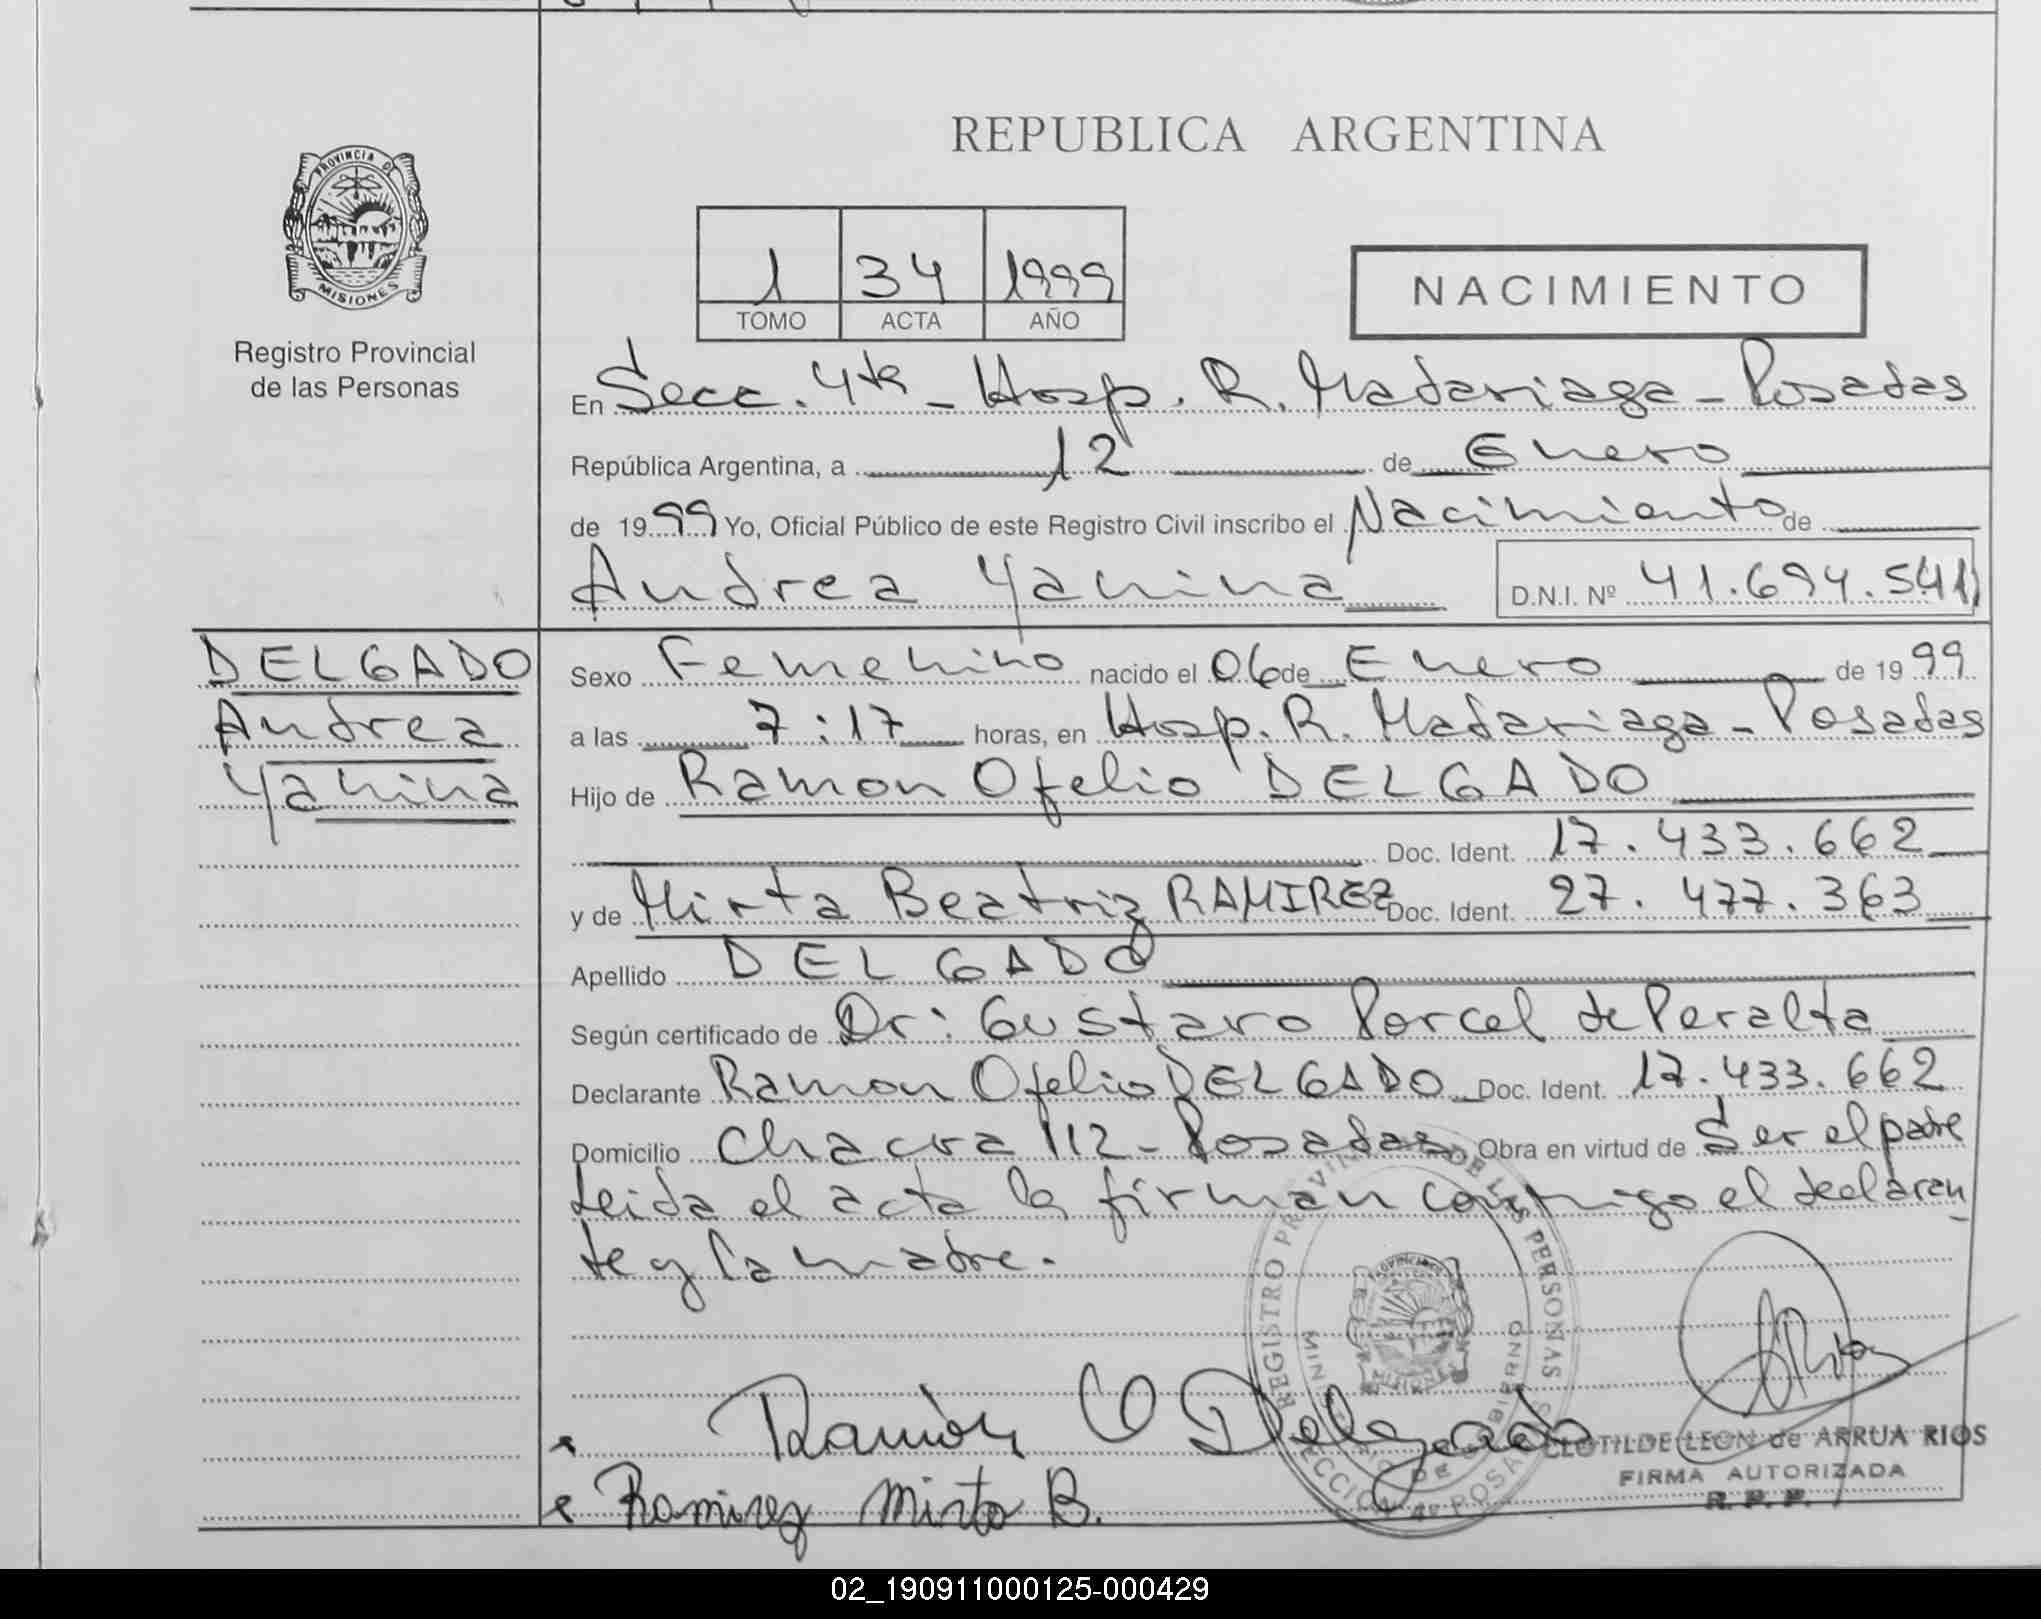 REPUBLICA ARGENTINA
PROVINCIA DE
MISIONES
Registro Provincial
de las Personas
1 34 1999
TOMO ACTA AÑO
NACIMIENTO
En Secc. 4ta - Hosp. R. Madariaga - Posadas
República Argentina, a 12 de Enero
de 1999 Yo, Oficial Público de este Registro Civil inscribo el Nacimiento de
Andrea Yanina D.N.I. Nº 41.694.541
DELGADO
Andrea
Yanina
Sexo Femenino nacido el 06 de Enero de 1999
a las 7:17 horas, en Hosp. R. Madariaga - Posadas
Hijo de Ramon Ofelio DELGADO
Doc. Ident. 17.433.662
y de Mirta Beatriz RAMIREZ Doc. Ident. 27.477.363
Apellido DELGADO
Según certificado de Dr: Gustavo Porcel de Peralta
Declarante Ramon Ofelio DELGADO Doc. Ident. 17.433.662
Domicilio Chacra 112 - Posadas Obra en virtud de Ser el padre
Leida el acta la firman conmigo el declaran
te y la madre.
REGISTRO PROVINCIAL DE LAS PERSONAS
MINISTERIO DE GOBIERNO
SECCION 4º POSADAS
Ramón O Delgado
Ramirez Mirta B.
CLOTILDE LEON de ARRUA RIOS
FIRMA AUTORIZADA
R. P. P.
02_190911000125-000429